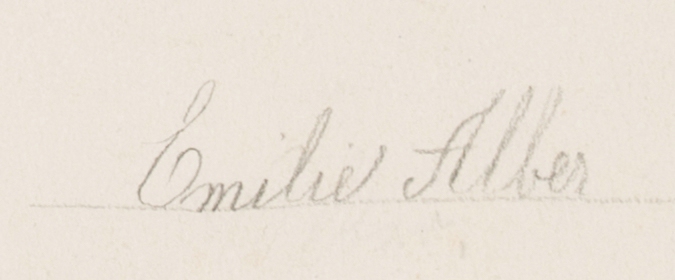 Emilie Alber